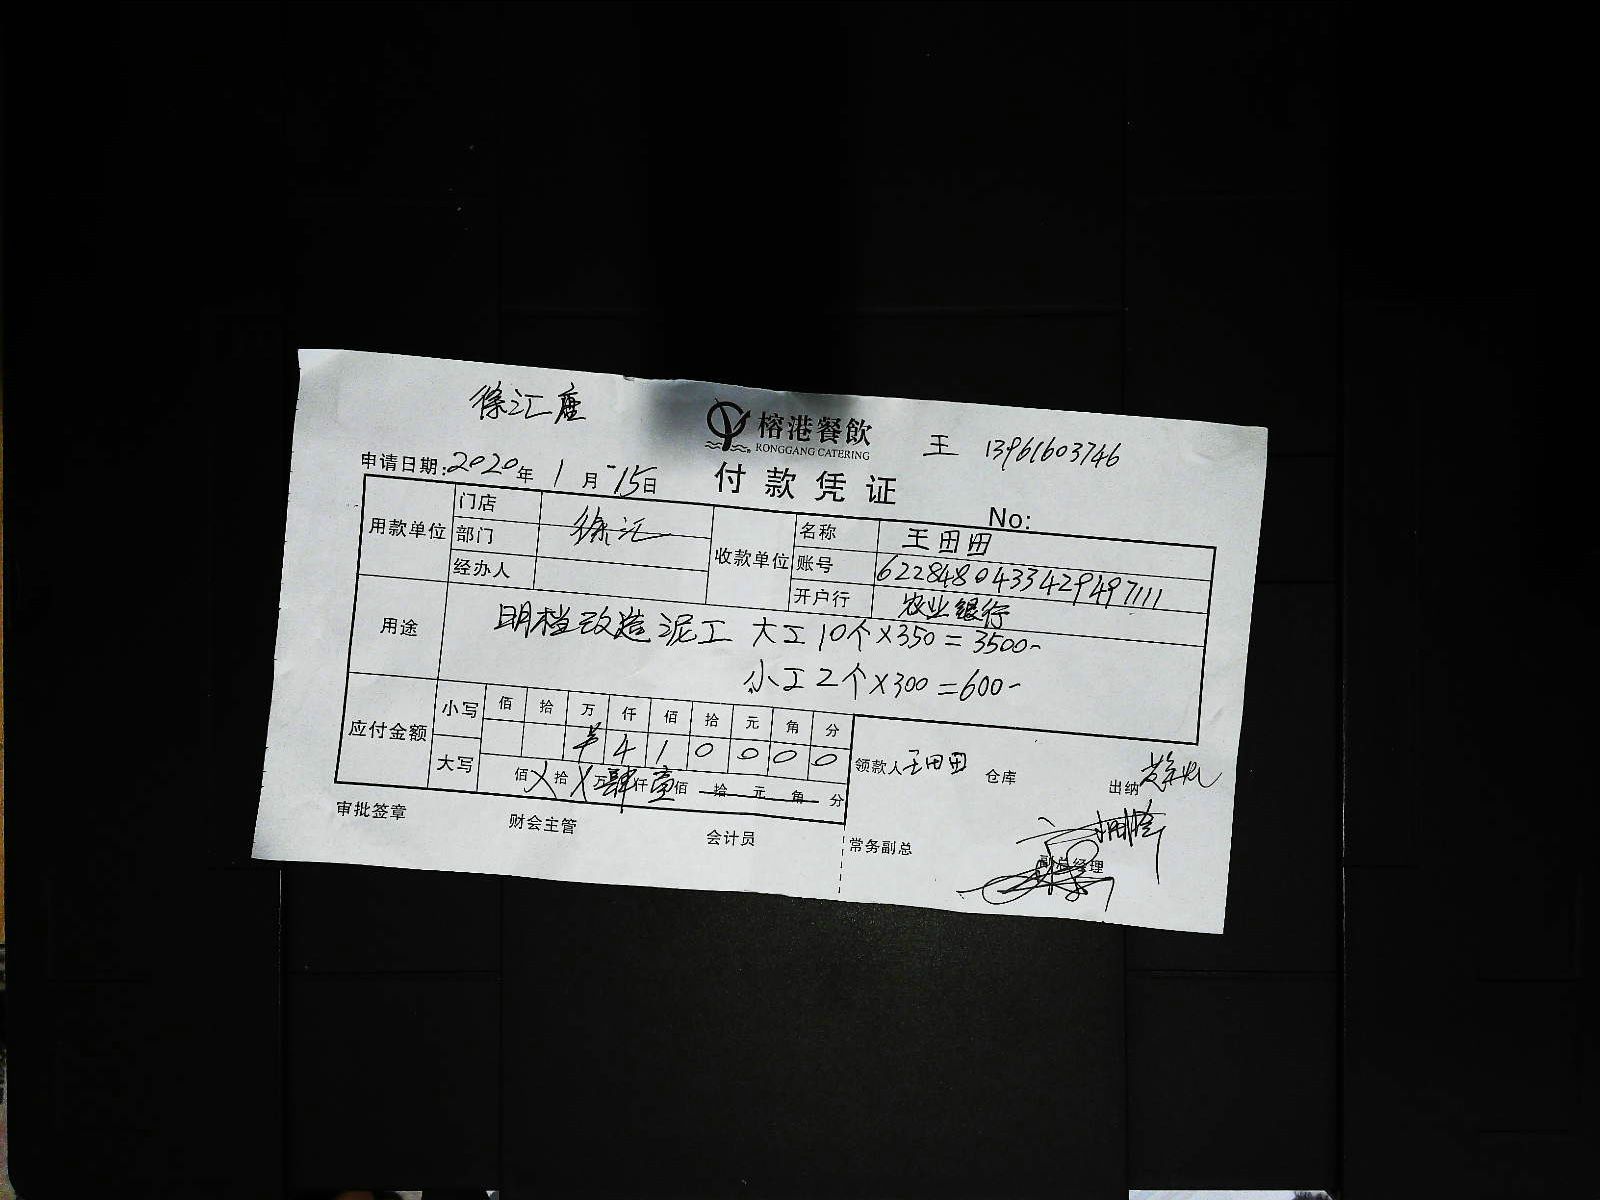 徐汇店
榕港餐飲
RONGGANG CATERING
王 13961603746
申请日期:2020年1月15日
付款凭证
No:
用款单位 门店 部门 徐汇 经办人
收款单位 名称 王田田
账号 6228480433429497111
开户行 农业银行
用途 明档改造泥工 大工10个×350=3500-
小工2个×300=600-
应付金额 小写 佰 拾 万 仟 佰 拾 元 角 分
4 1 0 0 0 0 0
大写 佰 X 拾 X 万 肆 仟 壹 佰 拾 元 角 分
领款人 王田田 仓库 出纳
审批签章 财会主管 会计员 常务副总 副总经理